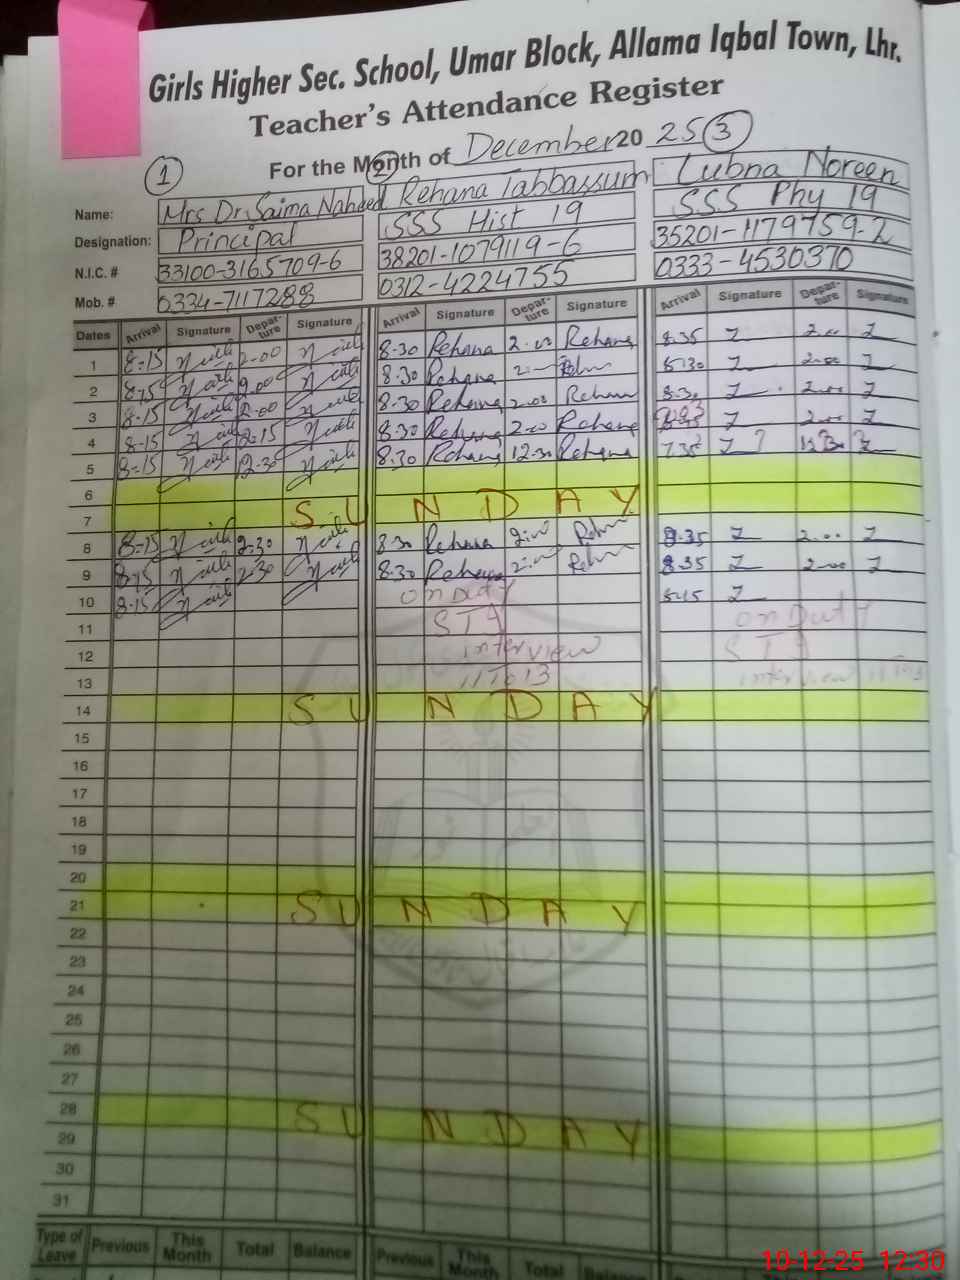 Girls Higher Sec. School, Umar Block, Allama Iqbal Town, Lhr.
Teacher's Attendance Register
For the Month of December 20 25
1 2 3
Name: Mrs Dr. Saima Naheed Rehana Tabbassum Lubna Noreen
Designation: Principal SSS Hist 19 SSS Phy 19
N.I.C. # 33100-3165709-6 38201-1079119-6 35201-1179759-2
Mob. # 0334-7117288 0312-4224755 0333-4530370
Dates Arrival Signature Departure Signature Arrival Signature Departure Signature Arrival Signature Departure Signature
1 8-15 2-00 8.30 Rehana 2-00 Rehana 8.35 2-00
2 8.30 Rehana 8.30 2-00
3 8-15 2-00 8.30 Rehana 2-00 Rehana 8.30 2-00
4 8-15 2-15 8.30 Rehana 2-00 Rehana 2-00
5 8-15 2-30 8.30 Rehana 12-30 Rehana
6
7 SUNDAY
8 8-15 2-30 8.30 Rehana 8.35 2-00
9 2-30 8.30 Rehana 8.35 2-00
10 8-15 on Duty 8.45
11 STI on Duty
12 interview STI
13 11 to 13 interview
14 SUNDAY
15
16
17
18
19
20
21 SUNDAY
22
23
24
25
26
27
28 SUNDAY
29
30
31
Type of Leave Previous This Month Total Balance Previous This Month Total Balance
10-12-25 12:30